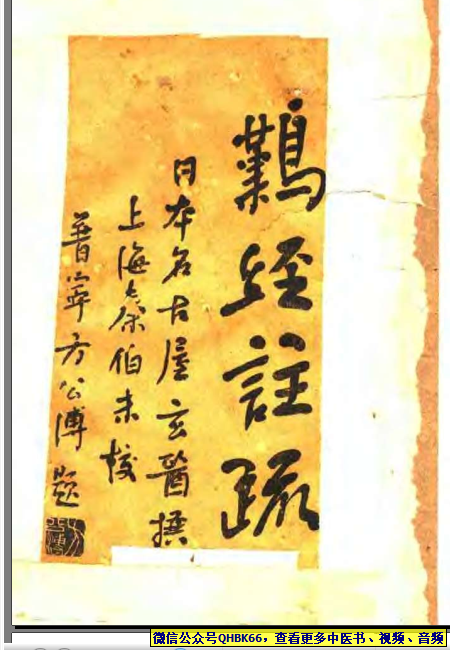 難經註疏
日本名古屋玄醫撰
上海秦伯未校
普寧方公溥題
微信公众号QHBK66，查看更多中医书、视频、音频